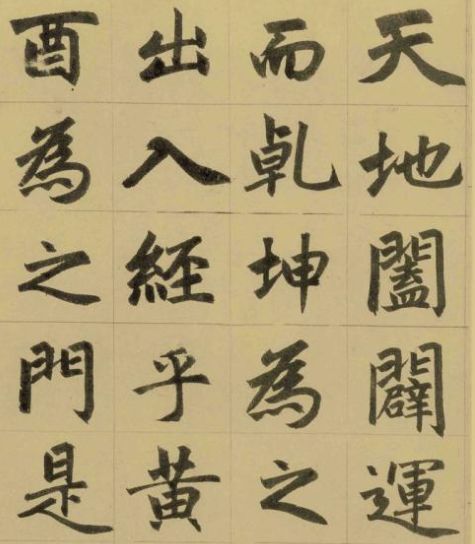 天地闔闢運
而乹坤為之
出入經乎黄
酉為之門是